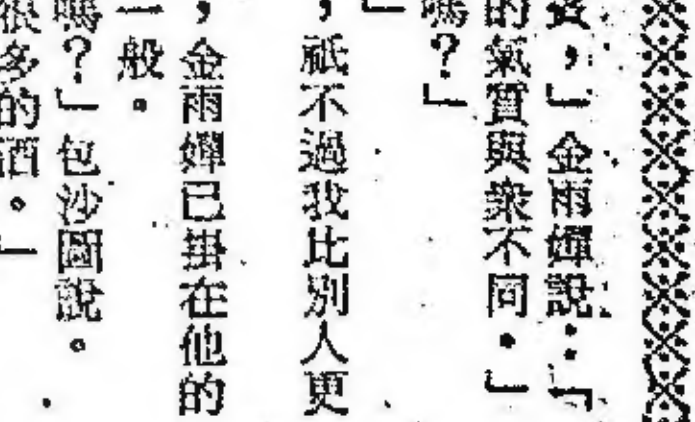 ，」金雨嬋說：「
的氣質與衆不同。」
嗎？」
」
，祇不過我比別人更
，金雨嬋已掛在他的
一般。
嗎？」包沙圖說。
很多的酒。」